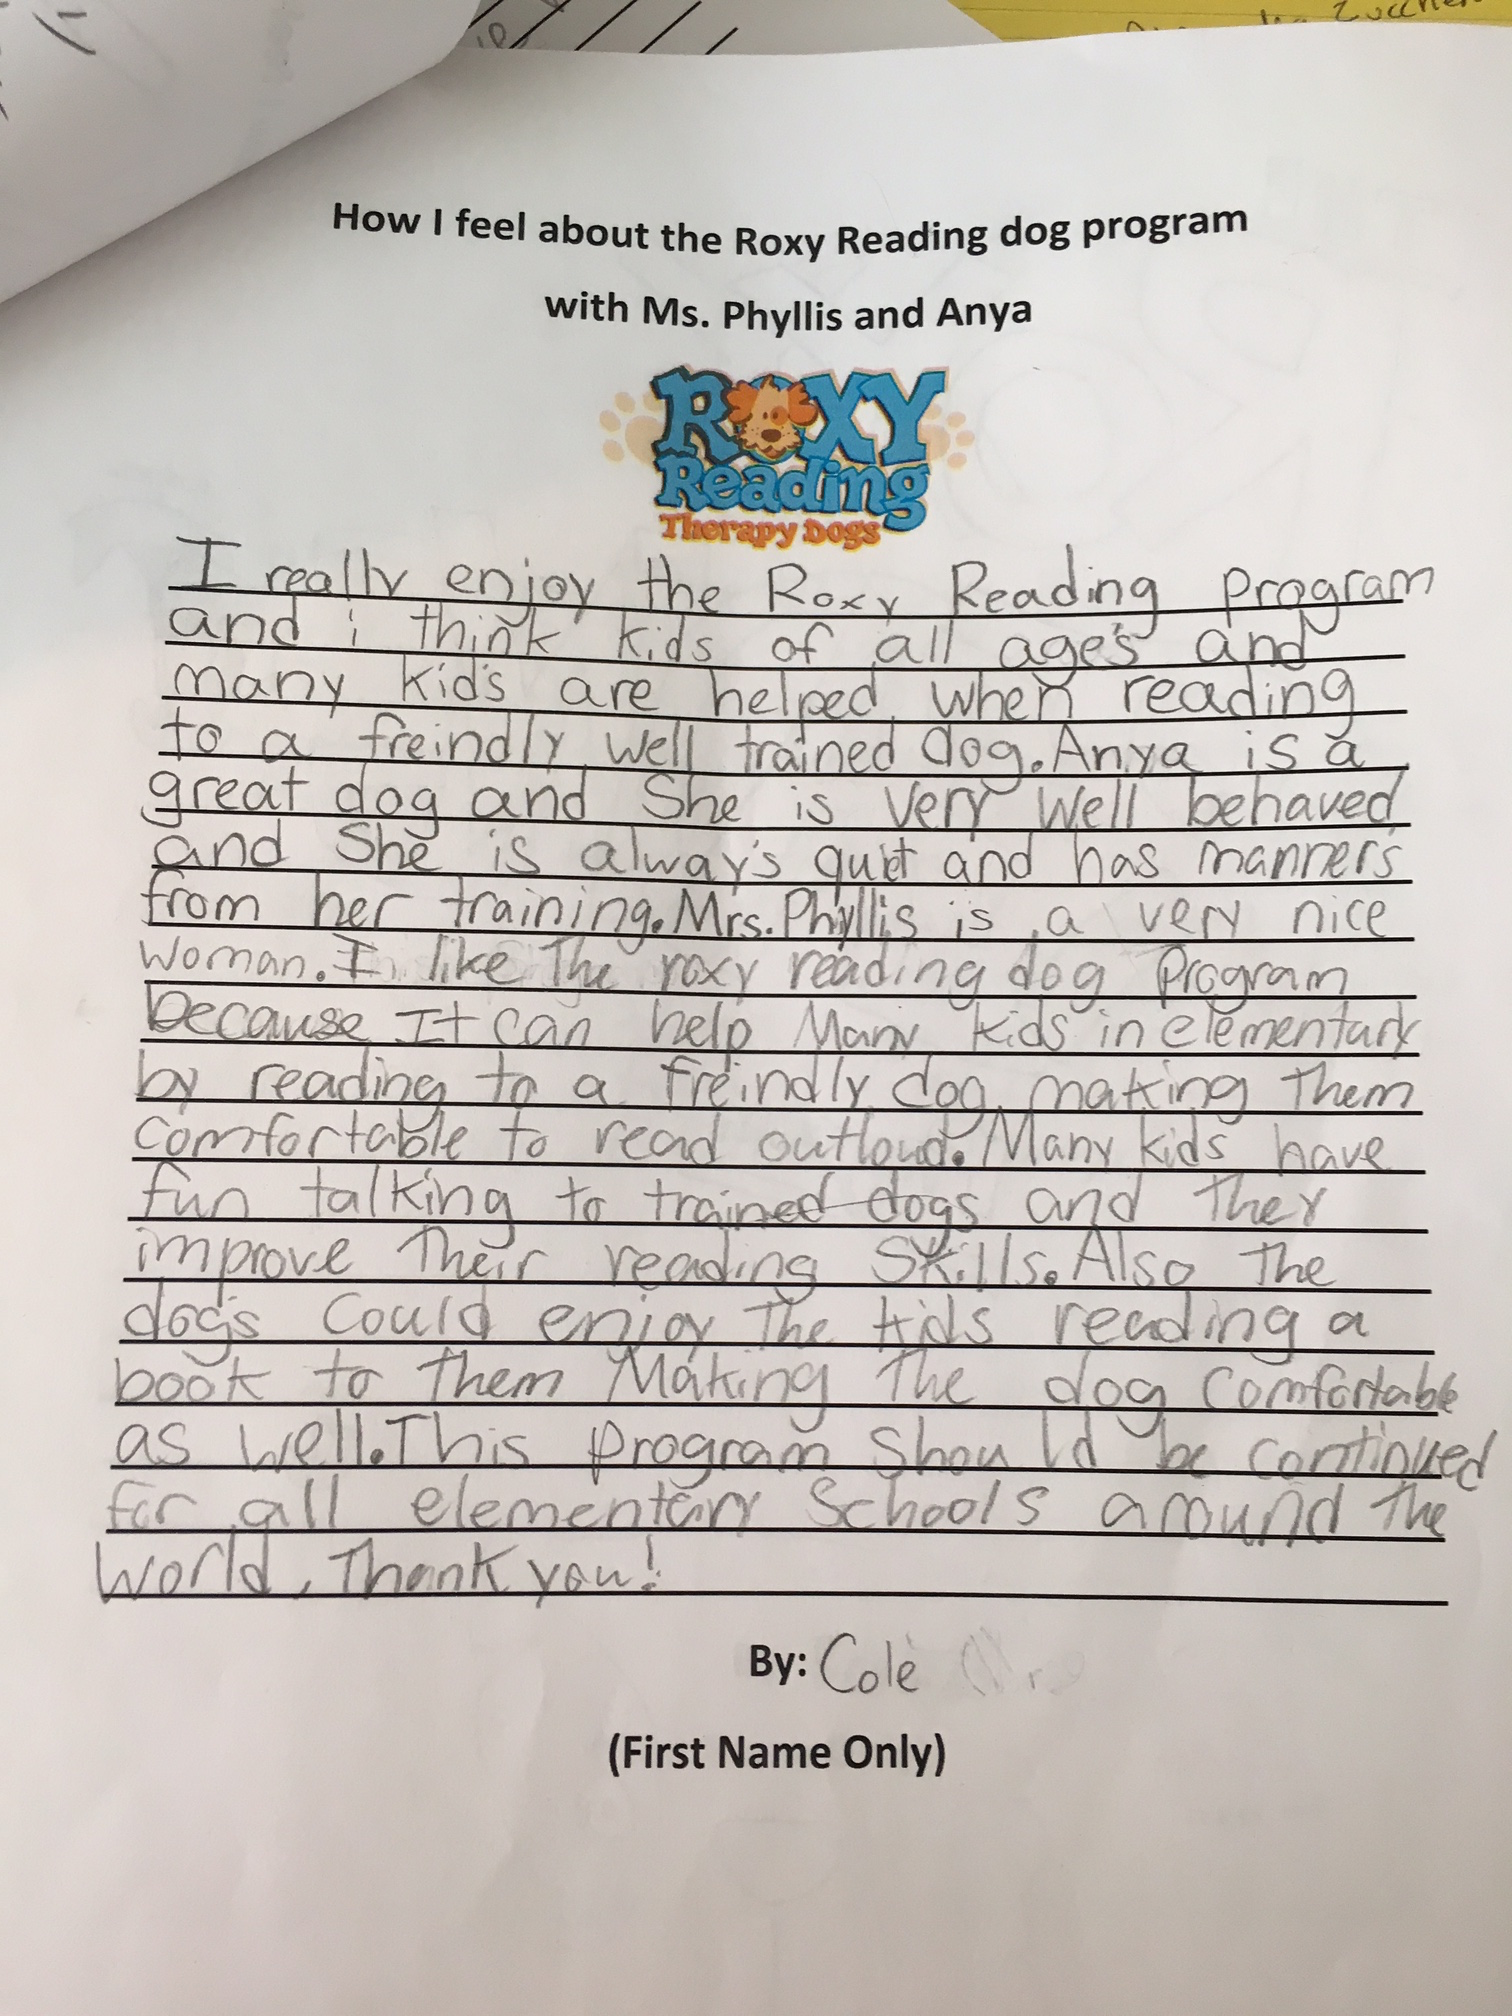 Zucchen
How I feel about the Roxy Reading dog program
with Ms. Phyllis and Anya
ROXY
Reading
Therapy Dogs
I really enjoy the Roxy Reading program
and i think kids of all age's and
many kid's are helped when reading
to a freindly well trained dog. Anya is a
great dog and She is very well behaved
and She is alway's quiet and has manner's
from her training. Mrs. Phyllis is a very nice
woman. I like The roxy reading dog Program
because It can help Many kids in elementary
by reading to a freindly dog making them
comfortable to read outloud. Many kids have
fun talking to trained dogs and They
improve Their reading Skills. Also The
dog's could enjoy The kids reading a
book to them Making The dog comfortable
as well. This program should be continued
for all elementary Schools around The
world. Thank you!
By: Cole
(First Name Only)